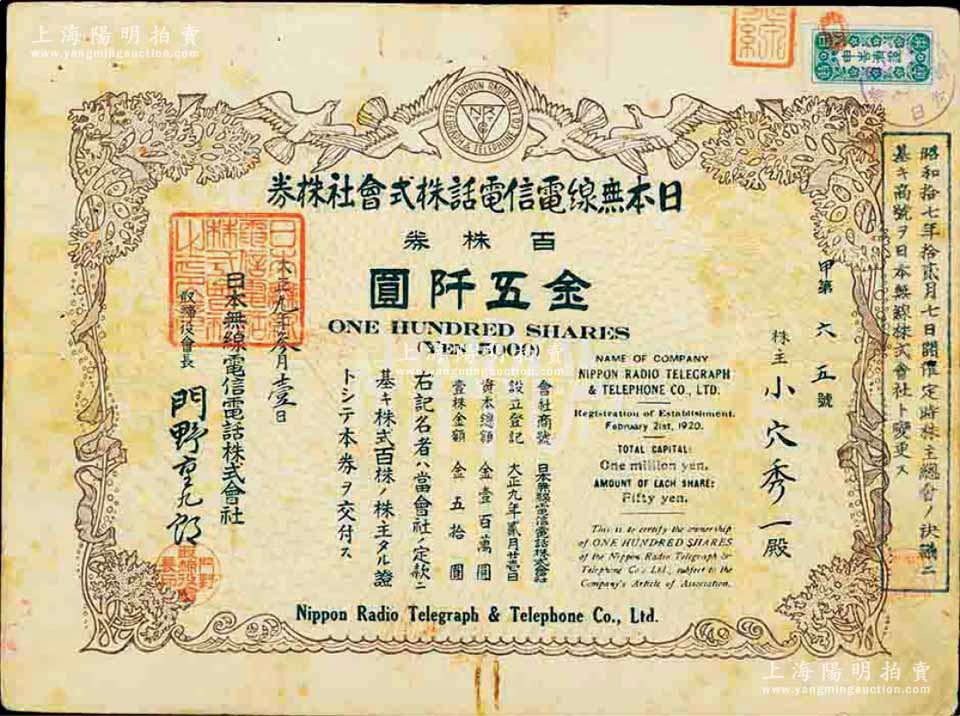 上海陽明拍賣
www.yangmingauction.com
NIPPON RADIO TELEGRAPH & TELEPHONE CO LTD
日本無線電信電話株式會社株券
百株券
金五阡圓
ONE HUNDRED SHARES
(YEN 5000)
昭和拾七年拾貳月七日開催定時株主總會ノ決議ニ
基キ商號ヲ日本無線株式會社ト變更ス
甲第六五號
株主 小穴秀一殿
NAME OF COMPANY
NIPPON RADIO TELEGRAPH
& TELEPHONE CO., LTD.
Registration of Establishment.
February 21st, 1920.
TOTAL CAPITAL:
One million yen.
AMOUNT OF EACH SHARE:
Fifty yen.
This is to certify the ownership
of ONE HUNDRED SHARES
of the Nippon Radio Telegraph &
Telephone Co., Ltd., subject to the
Company's Article of Association.
會社商號 日本無線電信電話株式會社
設立登記 大正九年貳月廿壹日
資本總額 金壹百萬圓
壹株金額 金五拾圓
右記名者ハ當會社ノ定款ニ
基キ株式百株ノ株主タル證
トシテ本券ヲ交付ス
大正九年參月壹日
日本無線電信電話株式會社
取締役會長 門野重九郎
Nippon Radio Telegraph & Telephone Co., Ltd.
上海陽明拍賣
www.yangmingauction.com